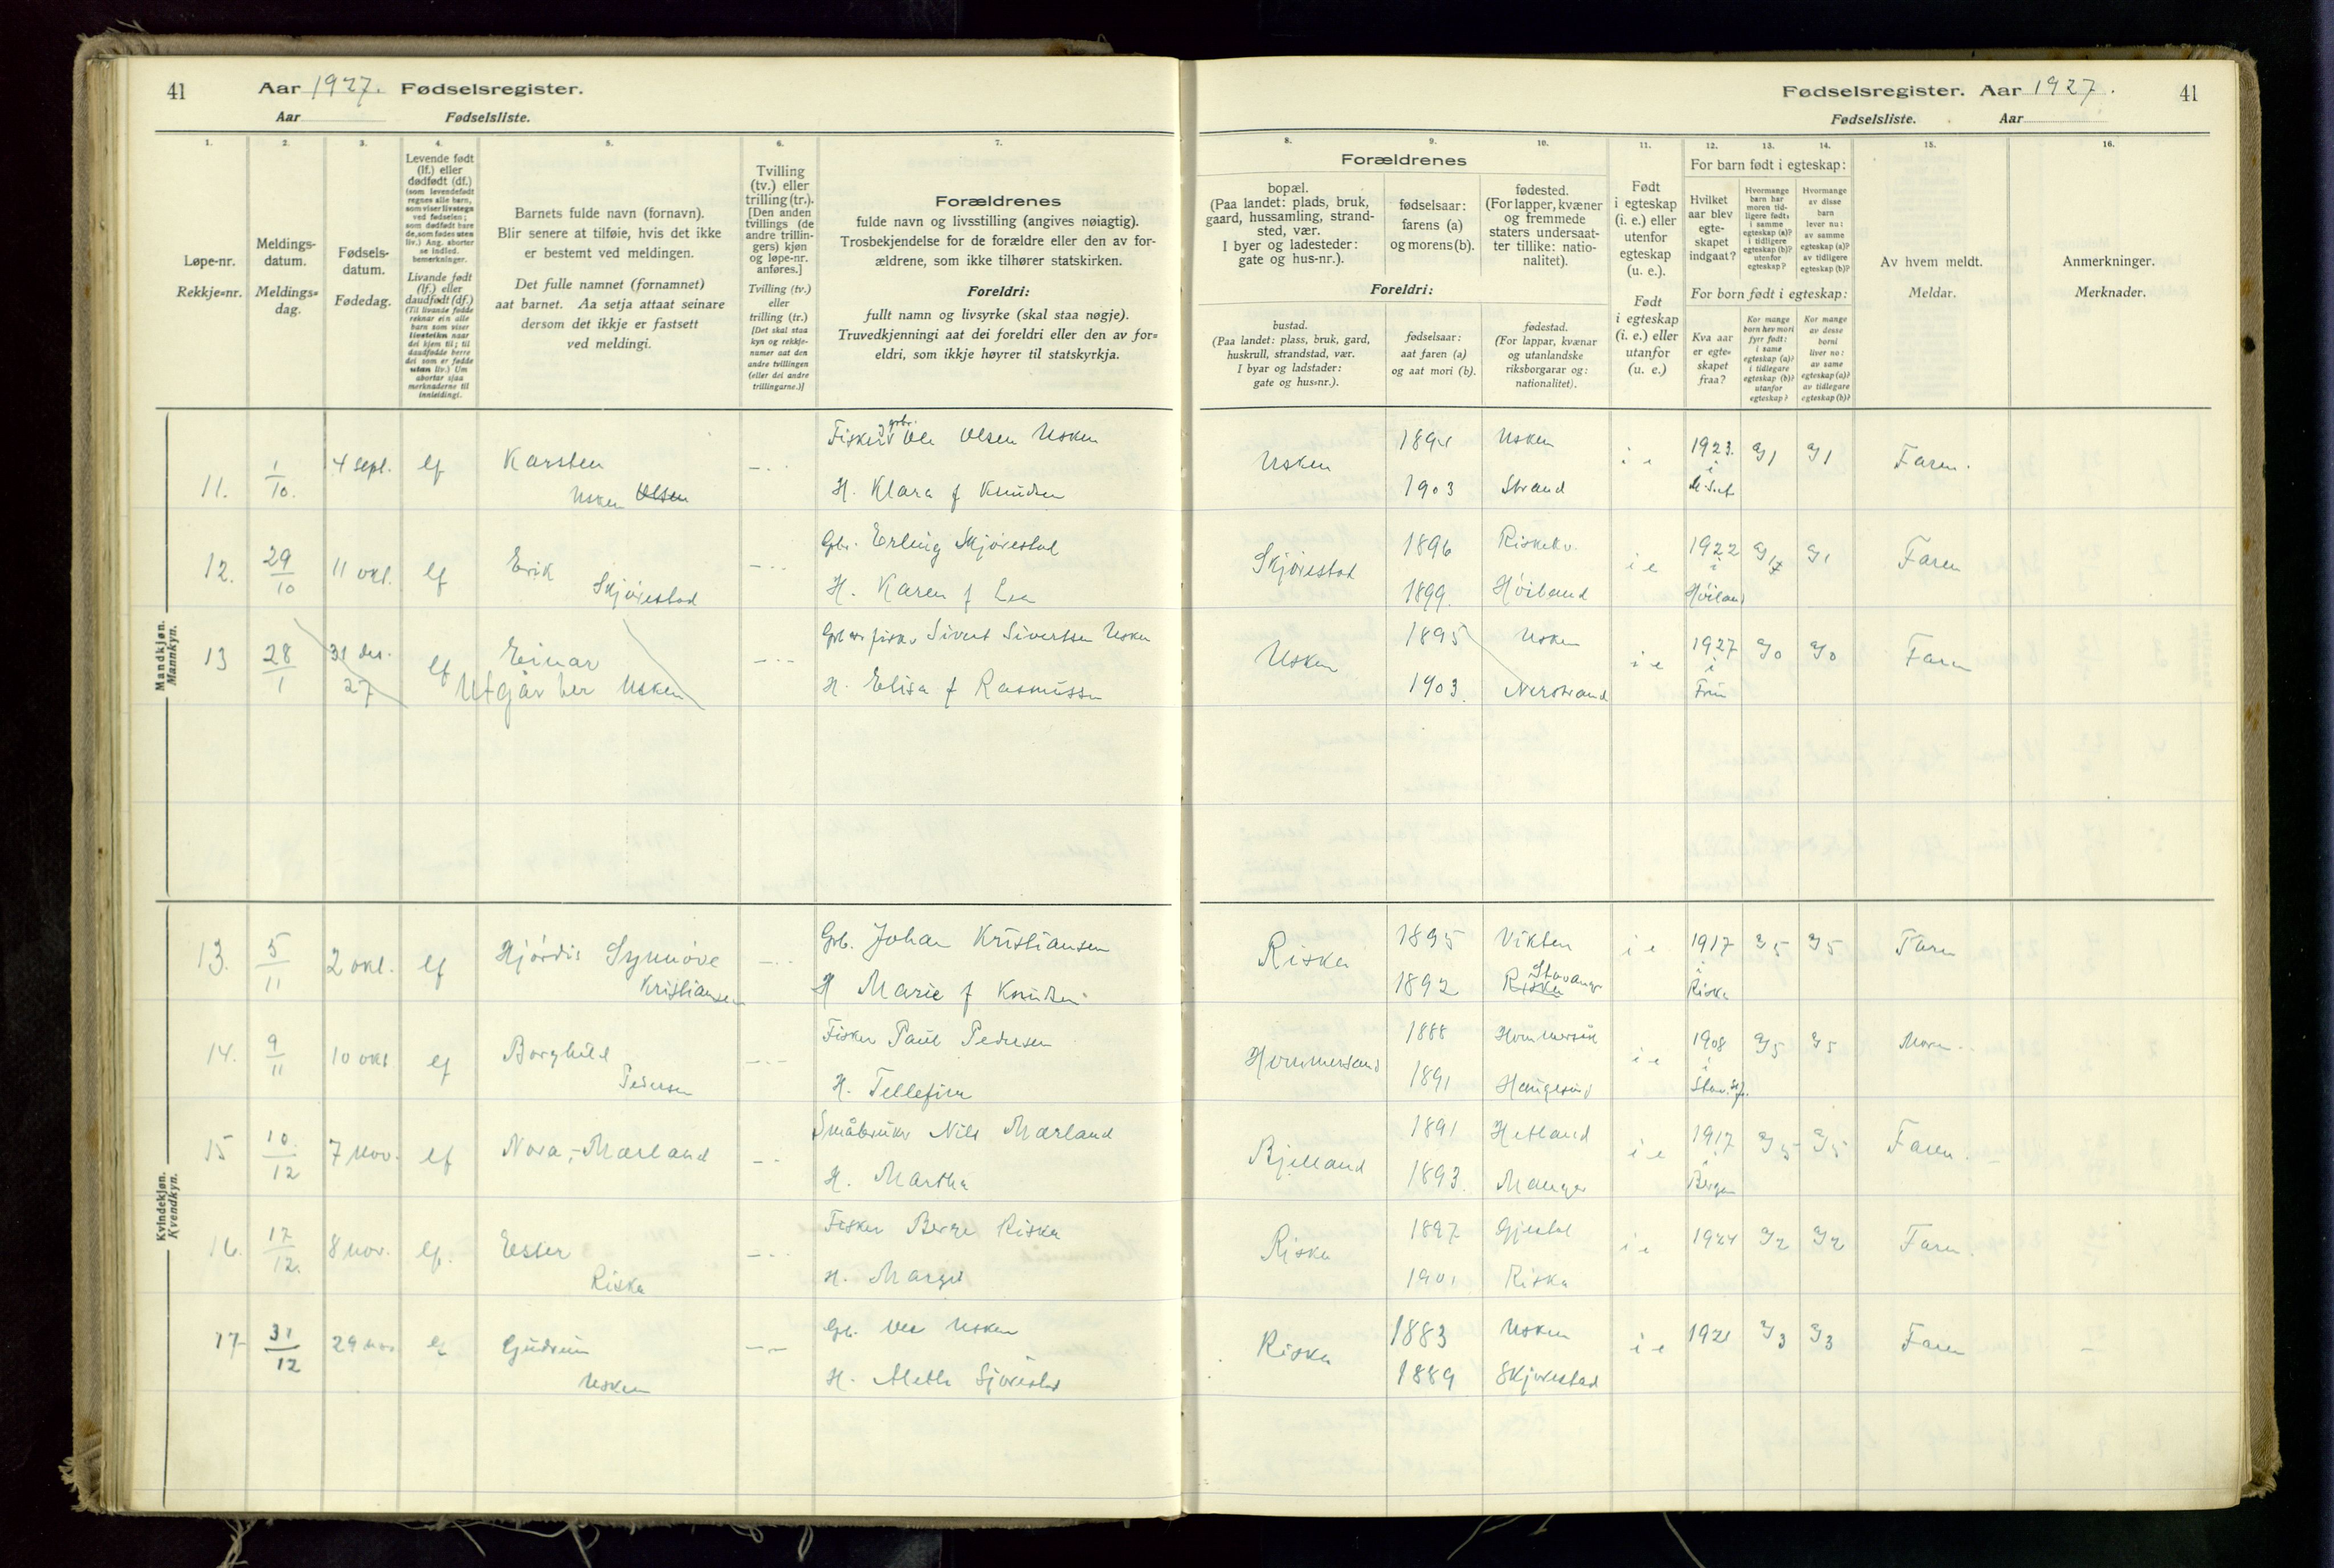 41
Aar 1927. Fødselsregister.
Aar Fødselsliste.
Fødselsregister. Aar 1927.
41
Fødselsliste. Aar
1.
Løpe-nr.
Rekkje-nr.
2.
Meldings-
datum.
Meldings-
dag.
3.
Fødsels-
datum.
Fødedag.
4.
Levende født
(lf.) eller
dødfødt (df.)
(som levendefødt
regnes alle barn,
som viser livstegn
ved fødselen;
som dødfødt bare
de, som fødes uten
liv.) Ang. aborter
se indled.
bemerkninger.
Livande født
(lf.) eller
daudfødt (df.)
(Til livande fødde
reknar ein alle
barn som viser
livsteikn naar
dei kjem til; til
daudfødde berre
dei som er fødde
utan liv.) Um
abortar sjaa
merknaderne til
innleidingi.
5.
Barnets fulde navn (fornavn).
Blir senere at tilføie, hvis det ikke
er bestemt ved meldingen.
Det fulle namnet (fornamnet)
aat barnet. Aa setja attaat seinare
dersom det ikkje er fastsett
ved meldingi.
6.
Tvilling
(tv.) eller
trilling (tr.).
[Den anden
tvillings (de
andre trillin-
gers) kjøn
og løpe-nr.
anføres.]
Tvilling (tv.)
eller
trilling (tr.)
[Det skal staa
kyn og rekkje-
numer aat den
andre tvillingen
(eller dei andre
trillingarne.)]
7.
Forældrenes
fulde navn og livsstilling (angives nøiagtig).
Trosbekjendelse for de forældre eller den av for-
ældrene, som ikke tilhører statskirken.
Foreldri:
fullt namn og livsyrke (skal staa nøgje).
Truvedkjenningi aat dei foreldri eller den av for-
eldri, som ikkje høyrer til statskyrkja.
Forældrenes
8.
bopæl.
(Paa landet: plads, bruk,
gaard, hussamling, strand-
sted, vær.
I byer og ladesteder:
gate og hus-nr.).
9.
fødselsaar:
farens (a)
og morens (b).
10.
fødested.
(For lapper, kvæner
og fremmede
staters undersaat-
ter tillike: natio-
nalitet).
Foreldri:
bustad.
(Paa landet: plass, bruk, gard,
huskrull, strandstad, vær.
I byar og ladstader:
gate og hus-nr.).
fødselsaar:
aat faren (a)
og aat mori (b).
fødestad.
(For lappar, kvænar
og utanlandske
riksborgarar og:
nationalitet).
11.
Født
i egteskap
(i. e.) eller
utenfor
egteskap
(u. e.).
Født
i egteskap
(i. e.) eller
utanfor
(u. e.)
12. 13. 14.
For barn født i egteskap:
Hvilket
aar blev
egte-
skapet
indgaat?
Hvormange
barn har
moren tid-
ligere født:
i samme
egteskap (a)?
i tidligere
egteskap (b)?
utenfor
egteskap?
Hvormange
av disse
barn
lever nu:
av samme
egteskap (a)?
av tidligere
egteskap (b)?
For born født i egteskap:
Kva aar
er egte-
skapet
fraa?
Kor mange
born hev mori
fyrr født:
i same
egteskap (a)?
i tidlegare
egteskap (b)?
utanfor
egteskap?
Kor mange
av desse
borni
liver no:
av same
egteskap (a)?
av tidlegare
egteskap (b)?
15.
Av hvem meldt.
Meldar.
16.
Anmerkninger.
Merknader.
Mandkjøn.
Mannkyn.
11. 1/10. 4 sept. lf Karsten
Usken Olsen
Fisker og gbr. Ole Olsen Usken
H. Klara f Knudsen
Usken 1894 Usken
1903 Strand
i e 1923. i Faren.
12. 29/10 11 okt. lf Erik
Skjørestad
Gbr. Erling Skjørestad
H. Karen f Lea
Skjørestad 1896
1899. Høiland
i e 1922 i Høiland Faren
13 28/1 31 des. 27 lf Einar
Utgår her Usken
Gbr og fisk. Sivert Sivertsen Usken
H. Elisa f Rasmussen
Usken 1895 Usken
1903. Nerstrand
i e 1927 i Faren
Kvindekjøn.
Kvendkyn.
13. 5/11 2 okt. lf Hjørdis Synnøve
Kristiansen
Grb. Johan Kristiansen
H Marie f Knudsen
Riska 1895 Vikten
1892 Riska Stavanger
i e 1917 i Riska Faren
14. 9/11 10 okt lf Borghild
Pedersen
Fisker Paul Pedersen
H. Tellefine
Hommersand 1888 Hommersak
1891 Haugesund
i e 1908 Moren.
15 10/12 7 nov. lf Nora, Marland
Småbruker Nils Marland
H. Martha
Bjelland 1891 Hetland
1893. Manger
i e 1917 i Bergen Faren.
16. 17/12. 8 nov. lf. Ester
Riska
Fisker Berge Riska
H. Margit
Riska 1897 Gjestal
1901 Riska
i e 1924 Faren.
17 31/12 29 nov lf Gudrun
Usken
Gb. Ole Usken
H. Alette Sjørestad
Riska 1883 Usken
1889 Skjørestad
i e 1921 Faren